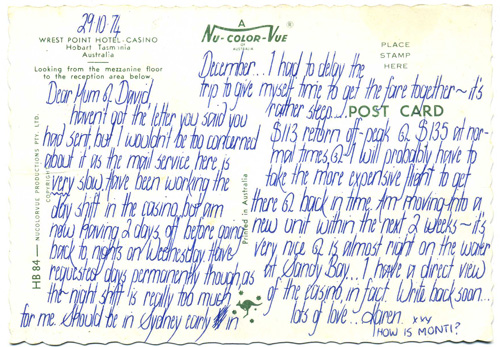 29.10.74
WREST POINT HOTEL-CASINO
Hobart Tasmania
Australia
Looking from the mezzanine floor
to the reception area below.
A
NU-COLOR-VUE
OF
AUSTRALIA
PLACE
STAMP
HERE
POST CARD
HB 84 — NUCOLORVUE PRODUCTIONS PTY. LTD.
COPYRIGHT
Printed in Australia
Dear Mum & David,
haven't got the letter you said you
had sent, but I wouldn't be too concerned
about it as the mail service here is
very slow. Have been working the
day shift in the casino, but am
now having 2 days off before going
back to nights on Wednesday. Have
requested days permanently though as
the night shift is really too much
for me. Should be in Sydney early in
December... I had to delay the
trip to give myself time to get the fare together - it's
rather steep....
$113 return off-peak & $135 at nor-
mal times, & I will probably have to
take the more expensive flight to get
there & back in time. Am moving into a
new unit within the next 2 weeks - it's
very nice & is almost right on the water
at Sandy Bay... I have a direct view
of the casino in fact. Write back soon...
lots of love... Karen. xxx
HOW IS MONTI?